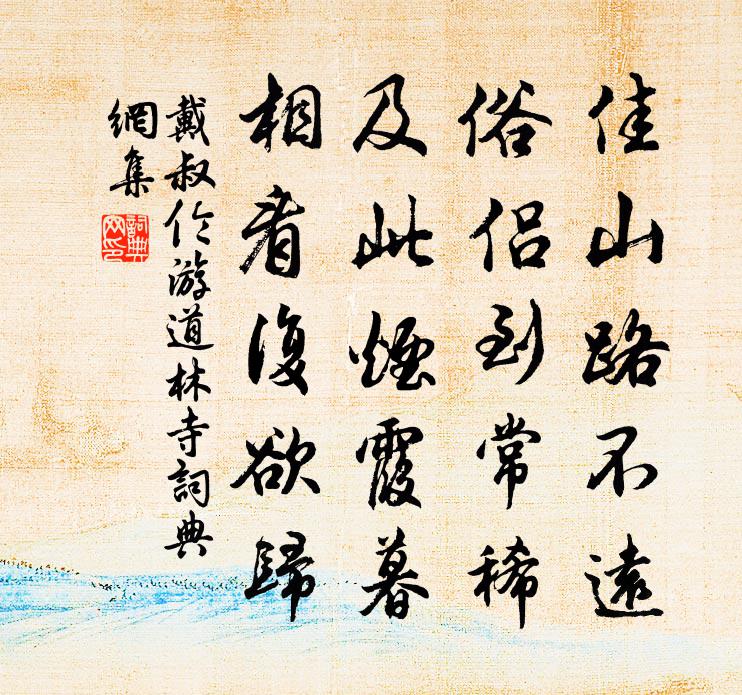 佳山路不遠
俗侣到常稀
及此煙霞暮
相看復欲歸
戴叔伦游道林寺詞典
網集
詞典
网印